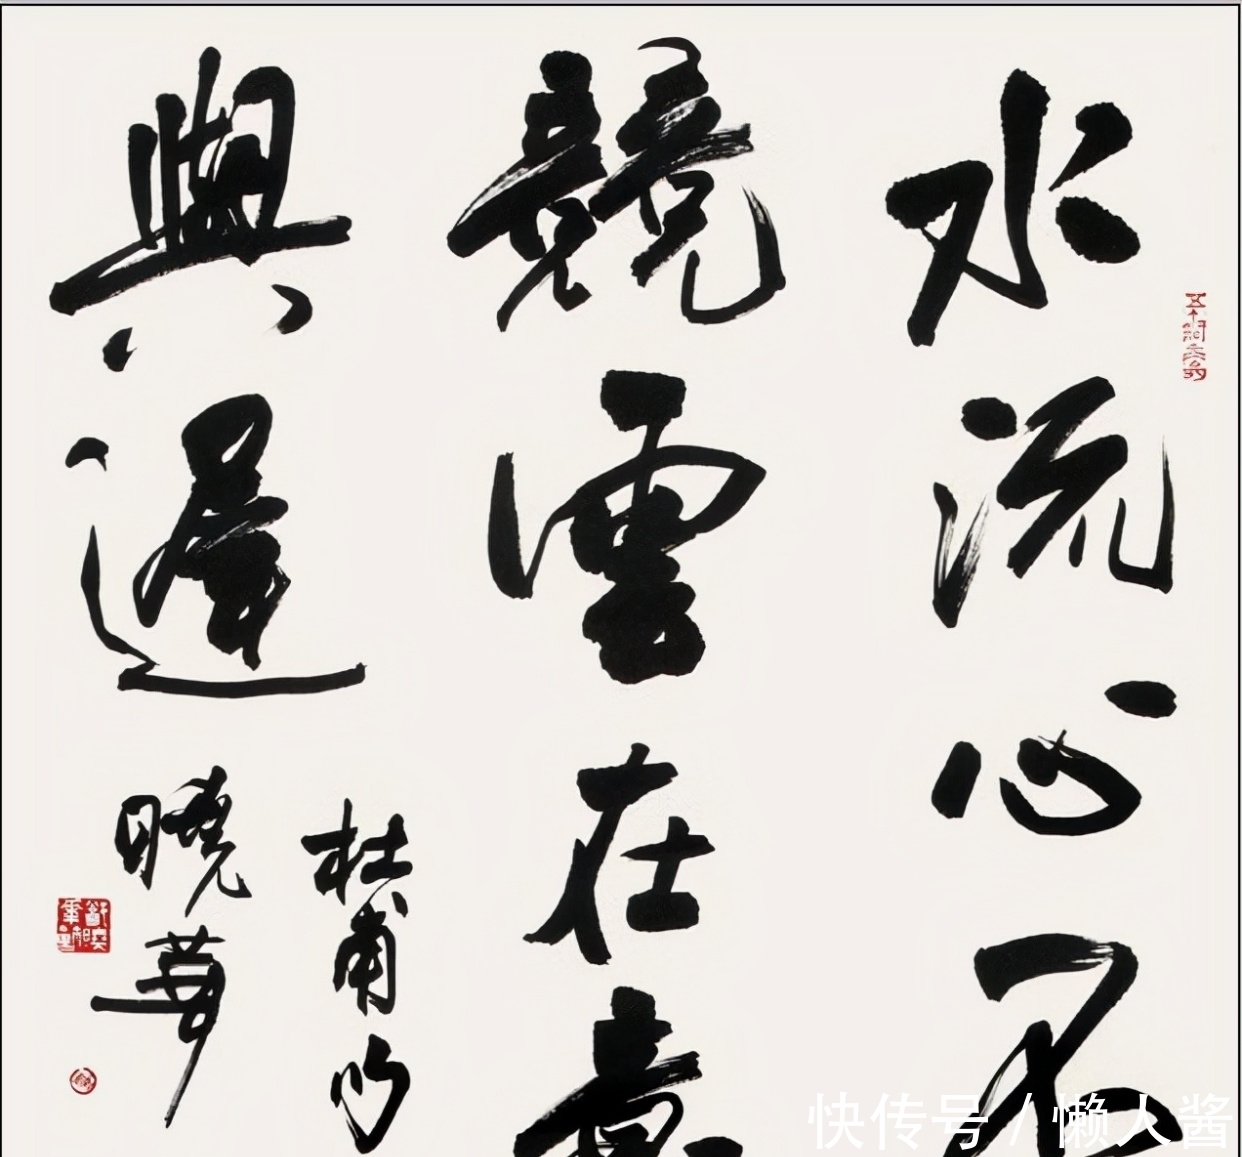 水流心不
競雲在意
與遲
杜甫句
曉華
快传号 / 懒人酱